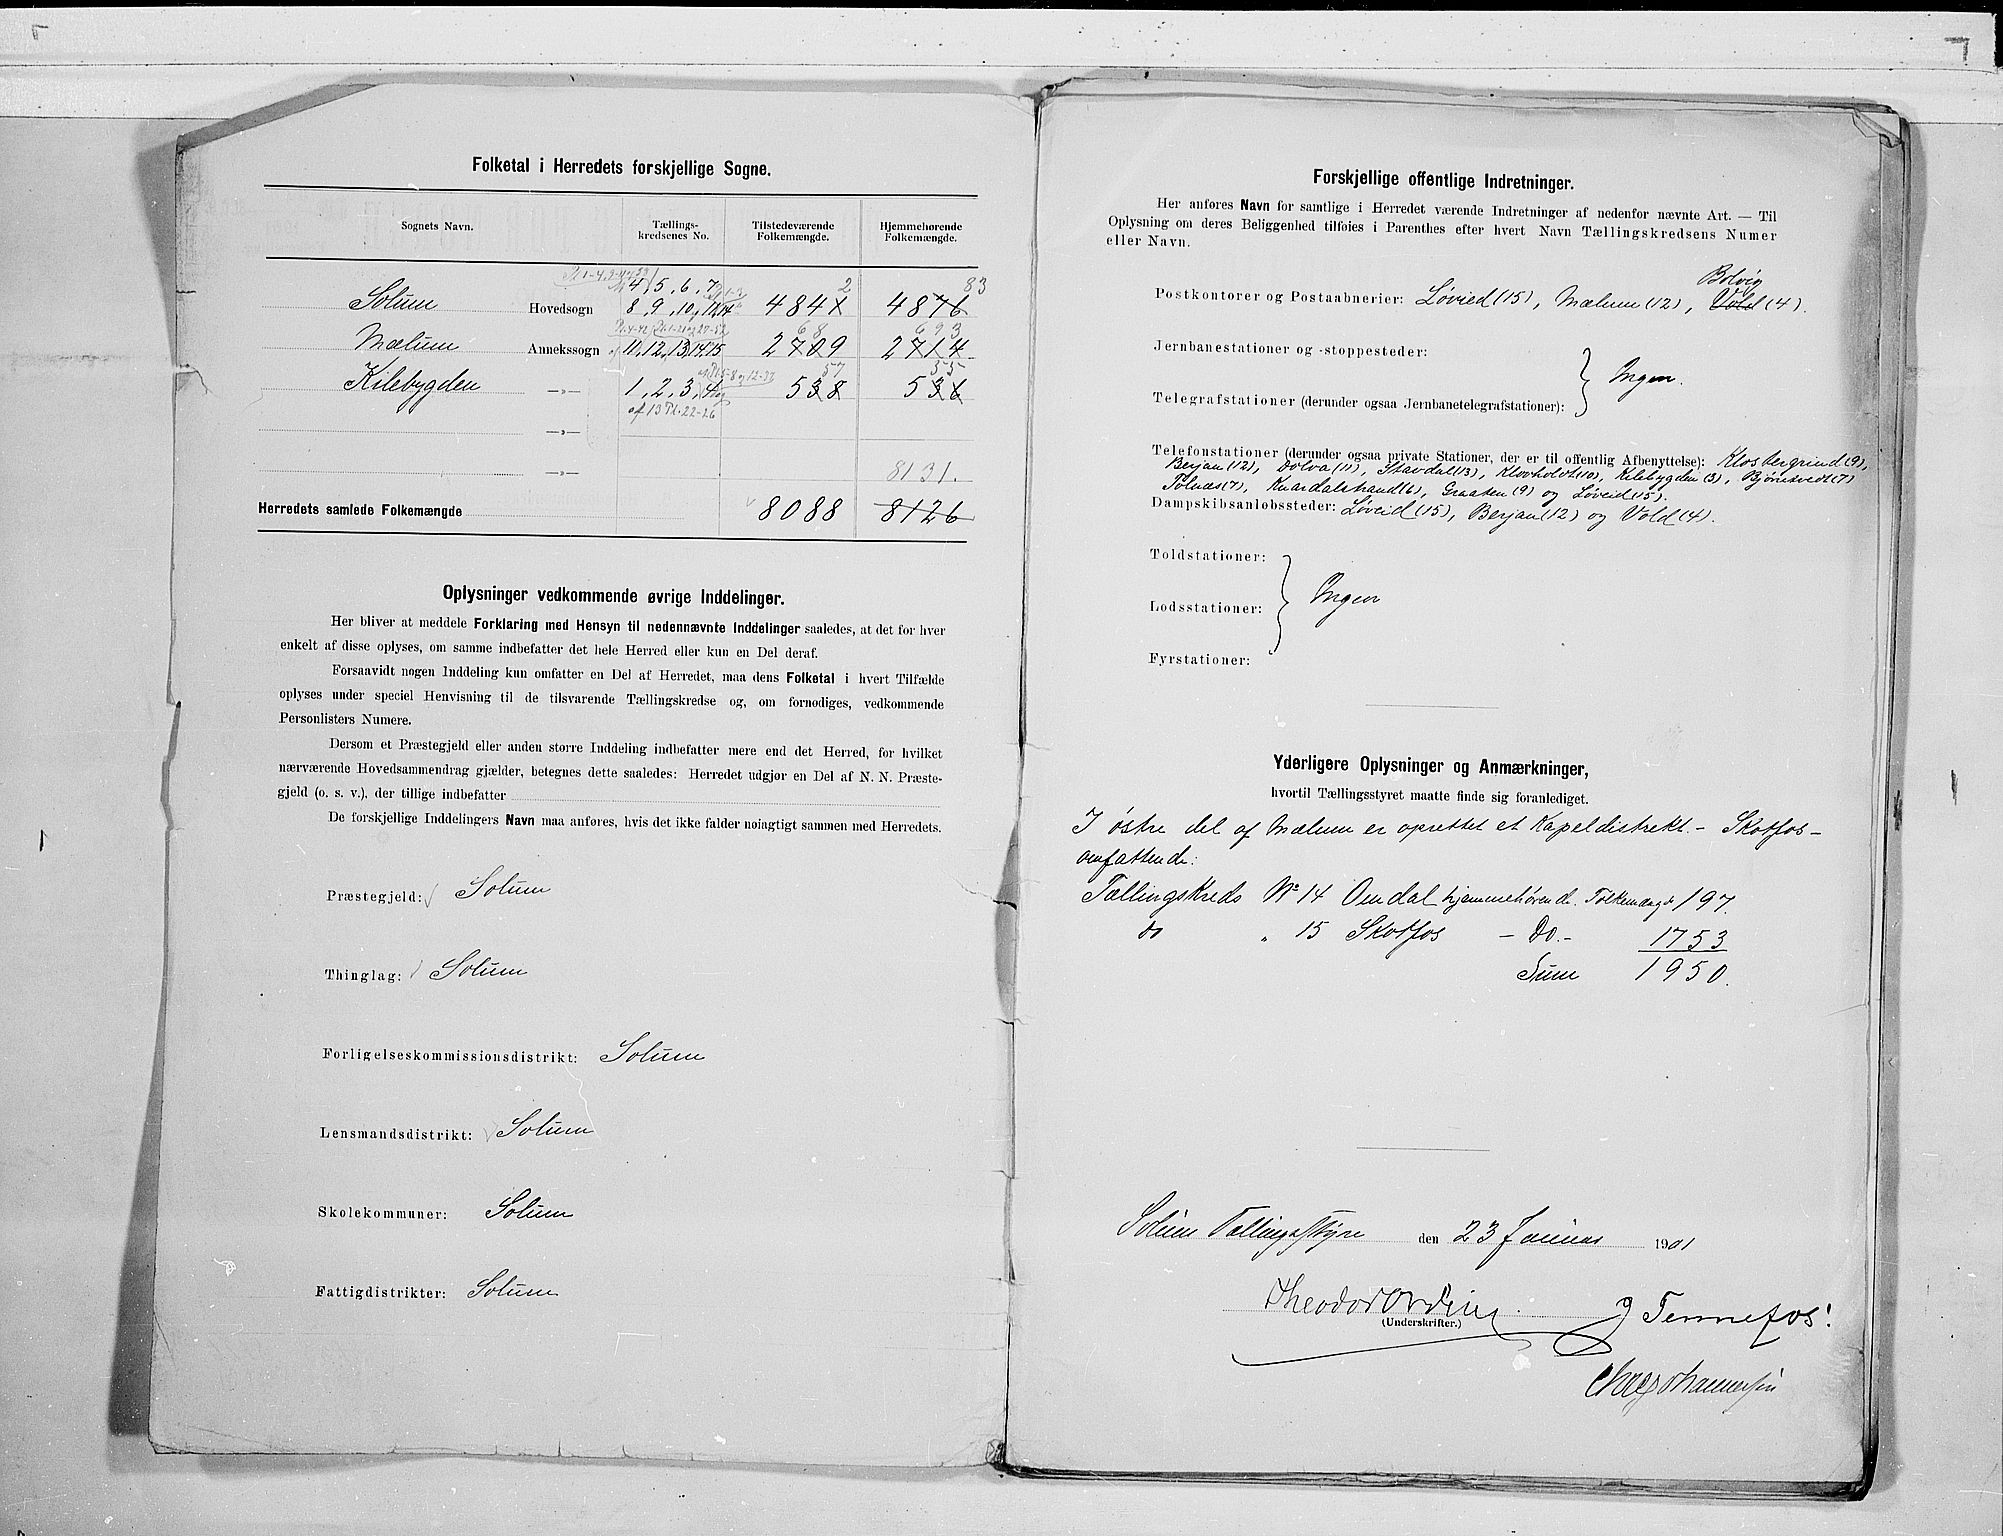 Folketal i Herredets forskjellige Sogne.
Sognets Navn.
Tællings-
kredsenes No.
Tilstedeværende
Folkemængde.
Hjemmehørende
Folkemængde.
2 83
4, 5, 6, 7
Solum Hovedsogn 8, 9, 10, 4841 4876
68 693
Mælum Annekssogn 11, 12, 13, 14, 15 2709 2714
57 55
Kilebygden —„— 1, 2, 3, 538 536
af 13 Pl. 22-26
—„—
—„— 8131.
Herredets samlede Folkemængde 8088 8126
Oplysninger vedkommende øvrige Inddelinger.
Her bliver at meddele Forklaring med Hensyn til nedennævnte Inddelinger saaledes, at det for hver
enkelt af disse oplyses, om samme indbefatter det hele Herred eller kun en Del deraf.
Forsaavidt nogen Inddeling kun omfatter en Del af Herredet, maa dens Folketal i hvert Tilfælde
oplyses under speciel Henvisning til de tilsvarende Tællingskredse og, om fornødiges, vedkommende
Personlisters Numere.
Dersom et Præstegjeld eller anden større Inddeling indbefatter mere end det Herred, for hvilket
nærværende Hovedsammendrag gjælder, betegnes dette saaledes: Herredet udgjør en Del af N. N. Præste-
gjeld (o. s. v.), der tillige indbefatter
De forskjellige Inddelingers Navn maa anføres, hvis det ikke falder nøiagtigt sammen med Herredets.
Præstegjeld: Solum
Thinglag: Solum
Forligelseskommissionsdistrikt: Solum
Lensmandsdistrikt: Solum
Skolekommuner: Solum
Fattigdistrikter: Solum
Forskjellige offentlige Indretninger.
Her anføres Navn for samtlige i Herredet værende Indretninger af nedenfor nævnte Art. — Til
Oplysning om deres Beliggenhed tilføies i Parenthes efter hvert Navn Tællingskredsens Numer
eller Navn.
Bolvig
Postkontorer og Postaabnerier: Løvied (15), Mælum (12), Vold (4).
Jernbanestationer og -stoppesteder:
Ingen.
Telegrafstationer (derunder ogsaa Jernbanetelegrafstationer):
Telefonstationer (derunder ogsaa private Stationer, der er til offentlig Afbenyttelse): Klostergrind (9),
Berjan (12), Dolva (11), Stavdal (13), Klovholdt (10), Kilebygden (3), Bjørntvedt (7)
Tolnæs (7), Knardalstrand (6), Graaten (9) og Løveid (15).
Dampskibsanløbssteder: Løveid (15), Berjan (12) og Vold (4).
Toldstationer:
Lodsstationer: Ingen
Fyrstationer:
Yderligere Oplysninger og Anmærkninger,
hvortil Tællingsstyret maatte finde sig foranlediget.
I østre del af Mælum er oprettet et Kapeldistrekt. - Skotfos -
omfattende:
Tællingskreds No 14 Omdal hjemmehørende Folkemængde 197.
do „ 15 Skotfos - Do. - 1753
Sum 1950.
Solum Tællingsstyre den 23 Januar 1901
Theodor Ording. J Tennefos!
(Underskrifter.)